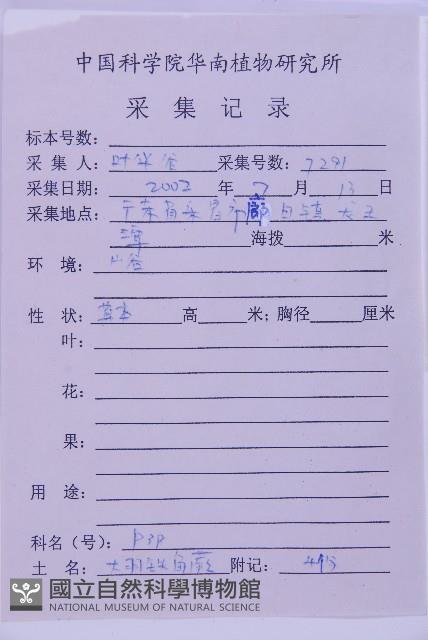 中国科学院华南植物研究所
采 集 记 录
标本号数：
采 集 人：叶华谷 采集号数：7291
采集日期： 2002 年 7 月 13 日
采集地点：广东省 市
潭 海拨 米
环 境：山谷
性 状：草本 高 米；胸径 厘米
叶：
花：
果：
用 途：
科名（号）：P3P
土 名：大羽 角蕨 附记：
國立自然科學博物館
NATIONAL MUSEUM OF NATURAL SCIENCE